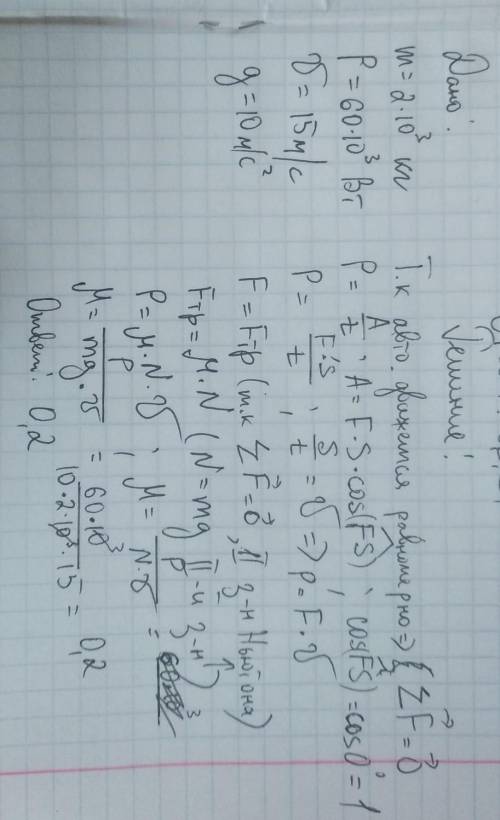 Дано:
m = 2·10³ кг
P = 60·10³ Вт
υ = 15 м/с
g = 10 м/с²
Решение:
Т.к авто. движется равномерно => { ΣF⃗ = 0⃗
P = A/t, A = F·S·cos(FS), cos(FS) = cos0° = 1
P = F·S/t, S/t = υ => p = F·υ
F = Fтр (т.к ΣF⃗ = 0⃗, II з-н Ньютона)
Fтр = μ·N (N = mg II-й з-н ↑)
P = μ·N·υ, μ = P/N·υ =
μ = P/mg·υ = 60·10³/10·2·10³·15 = 0,2
Ответ: 0,2